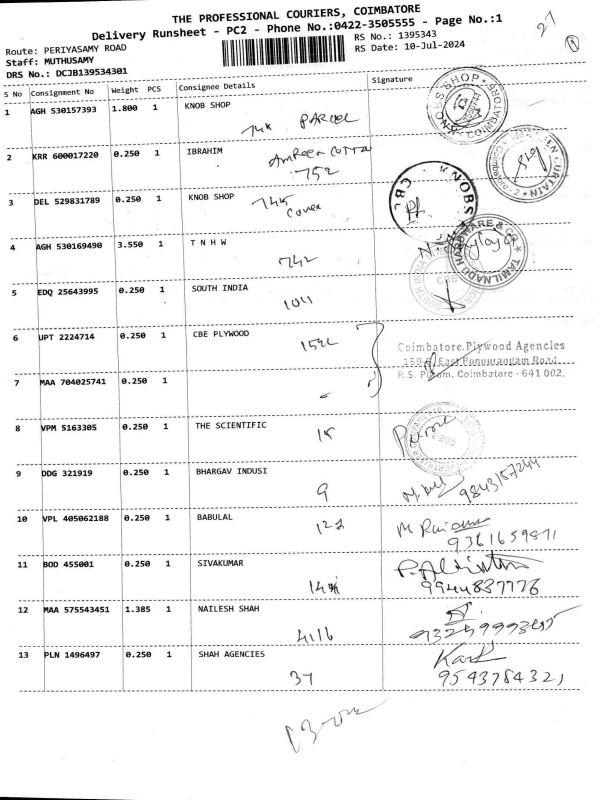 THE PROFESSIONAL COURIERS, COIMBATORE
Delivery Runsheet - PC2 - Phone No.:0422-3505555 - Page No.:1
27
1
Route: PERIYASAMY ROAD
RS No.: 1395343
Staff: MUTHUSAMY
RS Date: 10-Jul-2024
DRS No.: DCJB139534301
S No Consignment No Weight PCS Consignee Details Signature
1 AGH 530157393 1.800 1 KNOB SHOP
PARCEL
2 KRR 600017220 0.250 1 IBRAHIM
752
3 DEL 529831789 0.250 1 KNOB SHOP
Cover
KNOBS
CBE
4 AGH 530169490 3.550 1 T N H W
742
TAMILNADU HARDWARE & CO
5 EDQ 25643995 0.250 1 SOUTH INDIA
1011
6 UPT 2224714 0.250 1 CBE PLYWOOD
Coimbatore Plywood Agencies
East Ponnurangam Road
R.S. Puram, Coimbatore - 641 002.
7 MAA 704025741 0.250 1
8 VPM 5163305 0.250 1 THE SCIENTIFIC
15
9 DDG 321919 0.250 1 BHARGAV INDUSI
9
9843157244
10 VPL 405062188 0.250 1 BABULAL
9361659871
11 BOD 455001 0.250 1 SIVAKUMAR
9944837776
12 MAA 575543451 1.385 1 NAILESH SHAH
4116
13 PLN 1496497 0.250 1 SHAH AGENCIES
37
Kart
9543784321